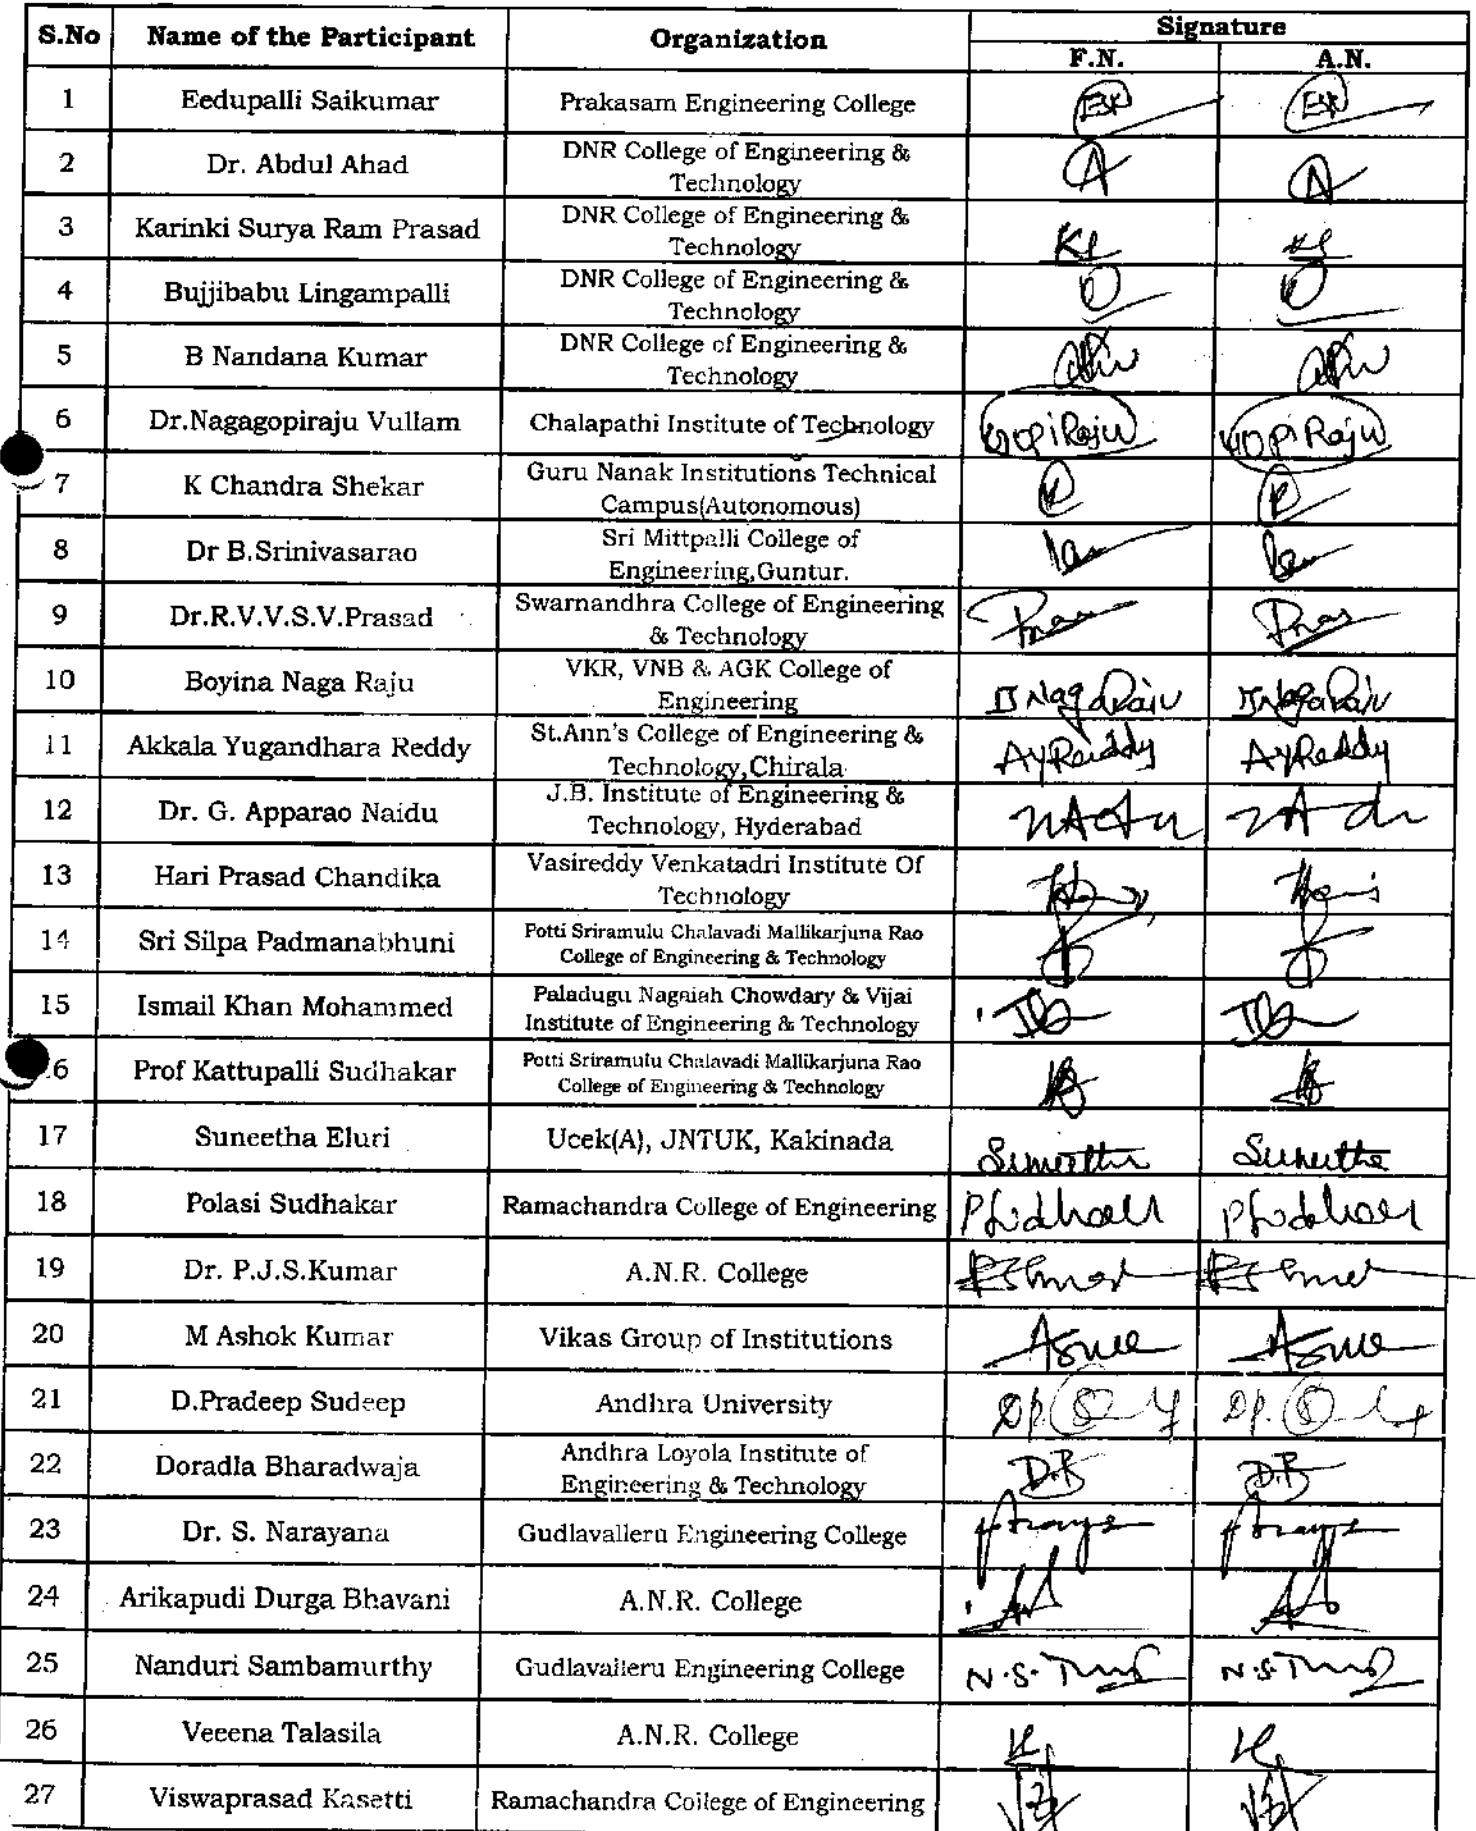 S.No Name of the Participant Organization Signature
F.N. A.N.
1 Eedupalli Saikumar Prakasam Engineering College
2 Dr. Abdul Ahad DNR College of Engineering &
Technology
3 Karinki Surya Ram Prasad DNR College of Engineering &
Technology
4 Bujjibabu Lingampalli DNR College of Engineering &
Technology
5 B Nandana Kumar DNR College of Engineering &
Technology
6 Dr.Nagagopiraju Vullam Chalapathi Institute of Technology GopiRaju GOPiRaju
7 K Chandra Shekar Guru Nanak Institutions Technical
Campus(Autonomous)
8 Dr B.Srinivasarao Sri Mittpalli College of
Engineering,Guntur.
9 Dr.R.V.V.S.V.Prasad Swarnandhra College of Engineering
& Technology
10 Boyina Naga Raju VKR, VNB & AGK College of
Engineering B NagaRaju B NagaRaju
11 Akkala Yugandhara Reddy St.Ann's College of Engineering &
Technology,Chirala AYReddy AYReddy
12 Dr. G. Apparao Naidu J.B. Institute of Engineering &
Technology, Hyderabad
13 Hari Prasad Chandika Vasireddy Venkatadri Institute Of
Technology
14 Sri Silpa Padmanabhuni Potti Sriramulu Chalavadi Mallikarjuna Rao
College of Engineering & Technology
15 Ismail Khan Mohammed Paladugu Nagaiah Chowdary & Vijai
Institute of Engineering & Technology
6 Prof Kattupalli Sudhakar Potti Sriramulu Chalavadi Mallikarjuna Rao
College of Engineering & Technology
17 Suneetha Eluri Ucek(A), JNTUK, Kakinada Suneetha Suneetha
18 Polasi Sudhakar Ramachandra College of Engineering PSudhakar PSudhakar
19 Dr. P.J.S.Kumar A.N.R. College
20 M Ashok Kumar Vikas Group of Institutions
21 D.Pradeep Sudeep Andhra University
22 Doradla Bharadwaja Andhra Loyola Institute of
Engineering & Technology D.B D.B
23 Dr. S. Narayana Gudlavalleru Engineering College
24 Arikapudi Durga Bhavani A.N.R. College
25 Nanduri Sambamurthy Gudlavalleru Engineering College
26 Veeena Talasila A.N.R. College
27 Viswaprasad Kasetti Ramachandra College of Engineering